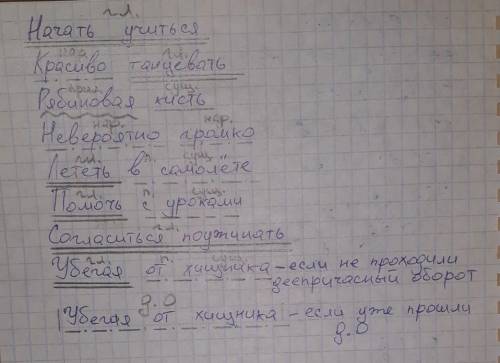 гл.
Начать учиться
нар. гл.
Красиво танцевать
прил. сущ.
Рябиновая кисть
нар. нар.
Невероятно громко
гл. п. сущ.
Лететь в самолёте
гл. п. сущ.
Помочь с уроками
гл.
Согласиться поужинать
гл. п. сущ.
Убегая от хищника - если не проходили
деепричасный оборот
д.о
Убегая от хищника - если уже прошли
д.о